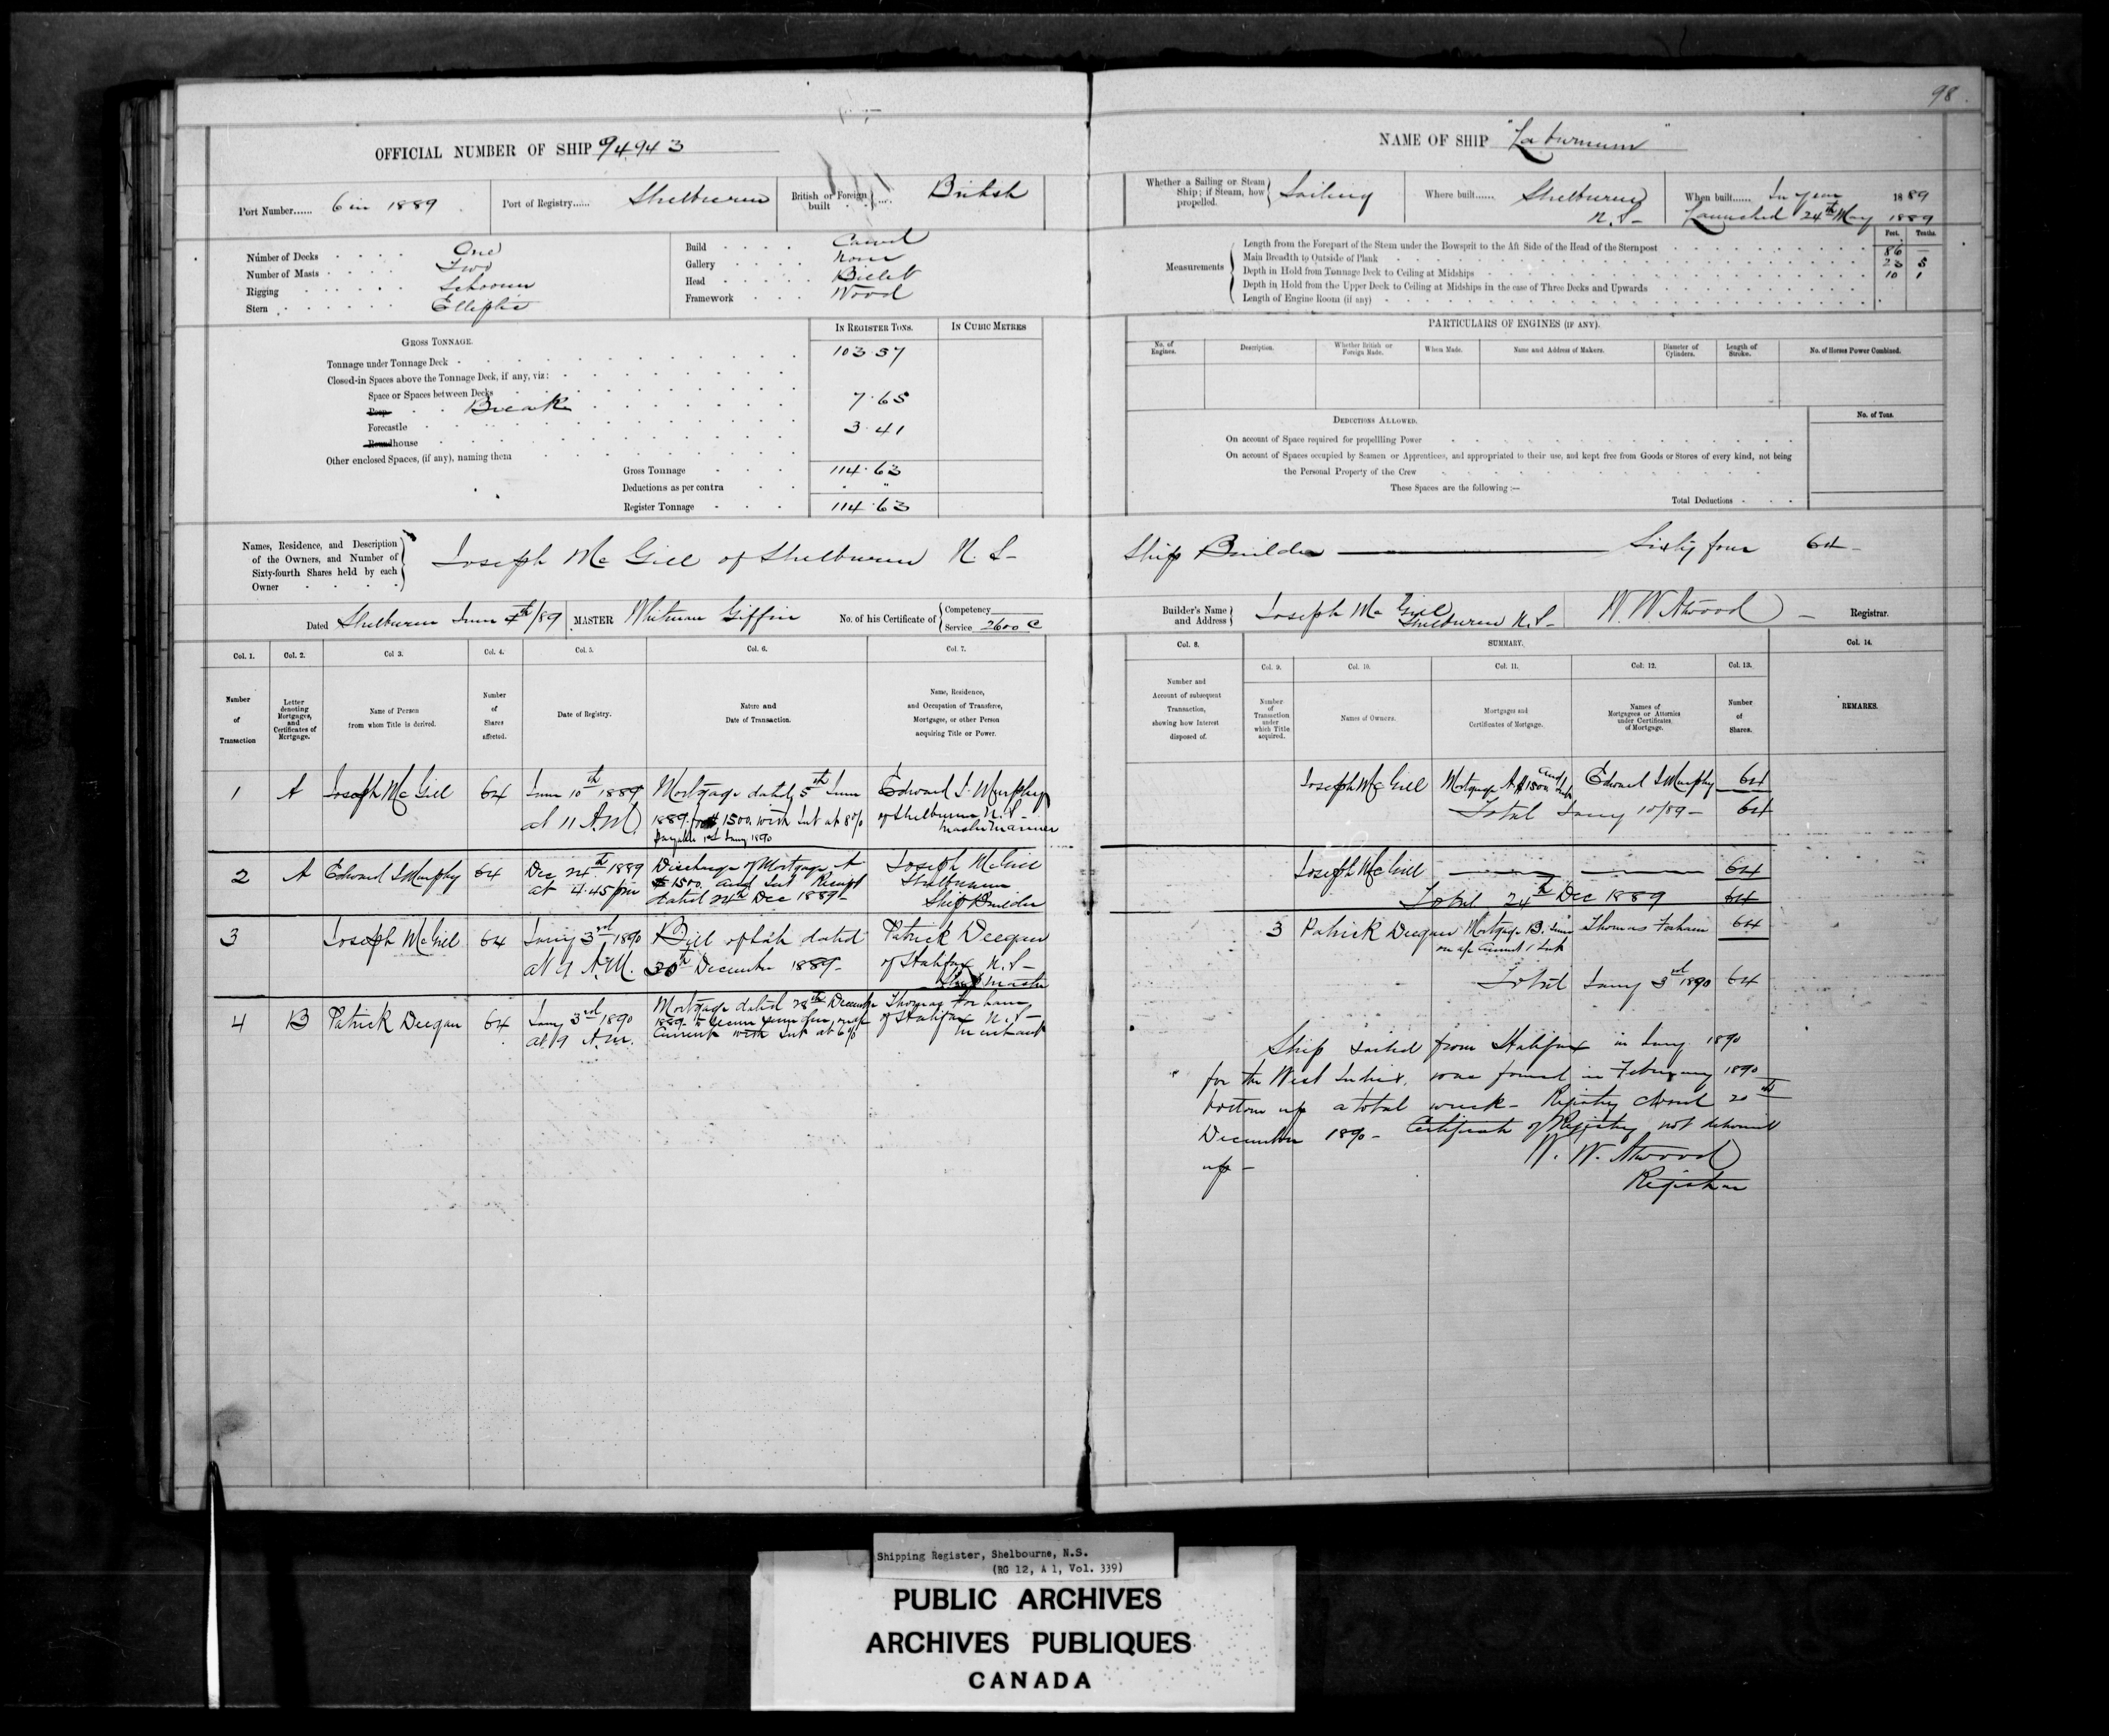 98
OFFICIAL NUMBER OF SHIP 94.943
Port Number...... 6 in 1889
Port of Registry...... Shelburne
British or Foreign built ... British
Number of Decks One
Number of Masts Two
Rigging Schooner
Stern Elliptic
Build Carvel
Gallery None
Head Billet
Framework Wood
GROSS TONNAGE.
IN REGISTER TONS.
IN CUBIC METRES
Tonnage under Tonnage Deck 103.57
Closed-in Spaces above the Tonnage Deck, if any, viz:
Space or Spaces between Decks
Poop Break 7.65
Forecastle
Roundhouse 3.41
Other enclosed Spaces, (if any), naming them
Gross Tonnage 114.63
Deductions as per contra " "
Register Tonnage 114.63
Names, Residence, and Description
of the Owners, and Number of
Sixty-fourth Shares held by each
Owner
Joseph Mc Gill of Shelburne N.S-
Dated Shelburne June 7th/89
MASTER Whitman Giffin
No. of his Certificate of Competency
Service 2600 C
Col. 1. Col. 2. Col 3. Col. 4. Col. 5. Col. 6. Col. 7.
Number of Transaction
Letter denoting Mortgages, and Certificates of Mortgage.
Name of Person from whom Title is derived.
Number of Shares affected.
Date of Registry.
Nature and Date of Transaction.
Name, Residence, and Occupation of Transferee, Mortgagee, or other Person acquiring Title or Power.
1 A Joseph Mc Gill 64 June 10th 1889 at 11 A.M.
Mortgage dated 5th June
1889 for $1500 with Int at 8%
payable 1st Jany 1890
Edward S. Murphy
of Shelburne N.S-
Master Mariner
2 A Edward S Murphy 64 Dec 24th 1889 at 4.45 pm
Discharge of Mortgage A
$1500. and Int Receipt
dated 24th Dec 1889-
Joseph McGill
Shelburne
Ship Builder
3 Joseph McGill 64 Jany 3rd 1890 at 9 A.M.
Bill of Sale dated
30th December 1889-
Patrick Deegan
of Halifax N.S-
Ship Master
4 B Patrick Deegan 64 Jany 3rd 1890 at 9 A.M.
Mortgage dated 28th December
1889 to secure sum due on a/c
Current with Int at 6%
Thomas Forham
of Halifax N.S-
Merchant
NAME OF SHIP "Laburnum"
Whether a Sailing or Steam
Ship; if Steam, how
propelled.
Sailing
Where built...... Shelburne
N.S-
When built...... In year 1889
Launched 24th May 1889
Feet. Tenths.
Measurements
Length from the Forepart of the Stem under the Bowsprit to the Aft Side of the Head of the Sternpost 86 –
Main Breadth to Outside of Plank 23 5
Depth in Hold from Tonnage Deck to Ceiling at Midships 10 1
Depth in Hold from the Upper Deck to Ceiling at Midships in the case of Three Decks and Upwards
Length of Engine Room (if any)
PARTICULARS OF ENGINES (IF ANY).
No. of Engines.
Description.
Whether British or Foreign Made.
When Made.
Name and Address of Makers.
Diameter of Cylinders.
Length of Stroke.
No. of Horses Power Combined.
DEDUCTIONS ALLOWED.
No. of Tons.
On account of Space required for propelling Power
On account of Spaces occupied by Seamen or Apprentices, and appropriated to their use, and kept free from Goods or Stores of every kind, not being
the Personal Property of the Crew
These Spaces are the following:—
Total Deductions
Ship Builder — Sixty four 64-
Builder's Name and Address Joseph Mc Gill
Shelburne N.S-
W. W. Atwood – Registrar.
Col. 8.
SUMMARY.
Col. 14.
Col. 9. Col. 10. Col. 11. Col. 12. Col. 13.
Number and Account of subsequent Transaction, showing how Interest disposed of.
Number of Transaction under which Title acquired.
Names of Owners.
Mortgages and Certificates of Mortgage.
Names of Mortgagees or Attornies under Certificates of Mortgage.
Number of Shares.
REMARKS.
Joseph Mc Gill Mortgage A $1500 and Int Edward S Murphy 64
Total Jany 10/89- 64
Joseph McGill 64
Total 24th Dec 1889 64
3 Patrick Deegan Mortgage B. Sum Thomas Forham 64
on a/c Current / Int
Total Jany 3rd 1890 64
Ship sailed from Halifax in Jany 1890
for the West Indies. was found in February 1890
bottom up a total wreck- Registry closed 20th
December 1890- Certificate of Registry not delivered
up-
W. W. Atwood
Registrar
Shipping Register, Shelbourne, N.S.
(RG 12, A 1, Vol. 339)
PUBLIC ARCHIVES
ARCHIVES PUBLIQUES
CANADA